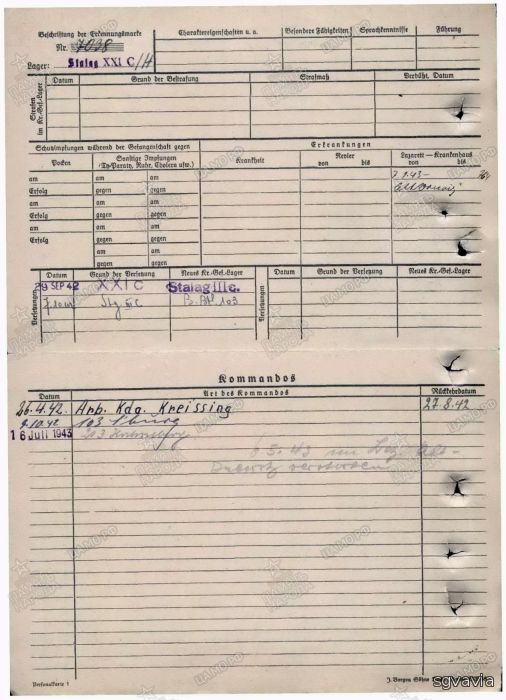 Beschriftung der Erkennungsmarke
Nr. 7038
Lager: Stalag XXI C/H
Charaktereigenschaften u. a.
Besondere Fähigkeiten
Sprachkenntnisse
Führung
Strafen im Kr.-Gef.-Lager
Datum
Grund der Bestrafung
Strafmaß
Verbüßt, Datum
Schutzimpfungen während der Gefangenschaft gegen
Erkrankungen
Pocken
Sonstige Impfungen
(Ty-Paraty, Ruhr, Cholera usw.)
Krankheit
Revier
von bis
Lazarett — Krankenhaus
von bis
am am am
Erfolg gegen gegen
am am am
Erfolg gegen gegen
am am am
Erfolg gegen gegen
am am
gegen gegen
Versetzungen
Datum
Grund der Versetzung
Neues Kr.-Gef.-Lager
Versetzungen
Datum
Grund der Versetzung
Neues Kr.-Gef.-Lager
29 SEP 42 XXI C Stalag III c.
103
Kommandos
Datum
Art des Kommandos
Rückkehrdatum
26.4.42. Arb. Kdo. Kreissing 27.8.42
9.10.42 103
16 Juli 1943
6 5.43 im Laz.
verstorben
Personalkarte 1
sgvavia
ЦАМО.РФ